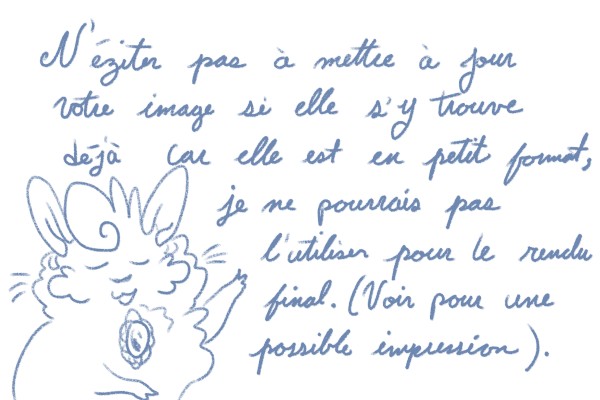 N'éziter pas à mettre à jour
votre image si elle s'y trouve
déjà car elle est en petit format,
je ne pourrais pas
l'utiliser pour le rendu
final. (Voir pour une
possible impression).